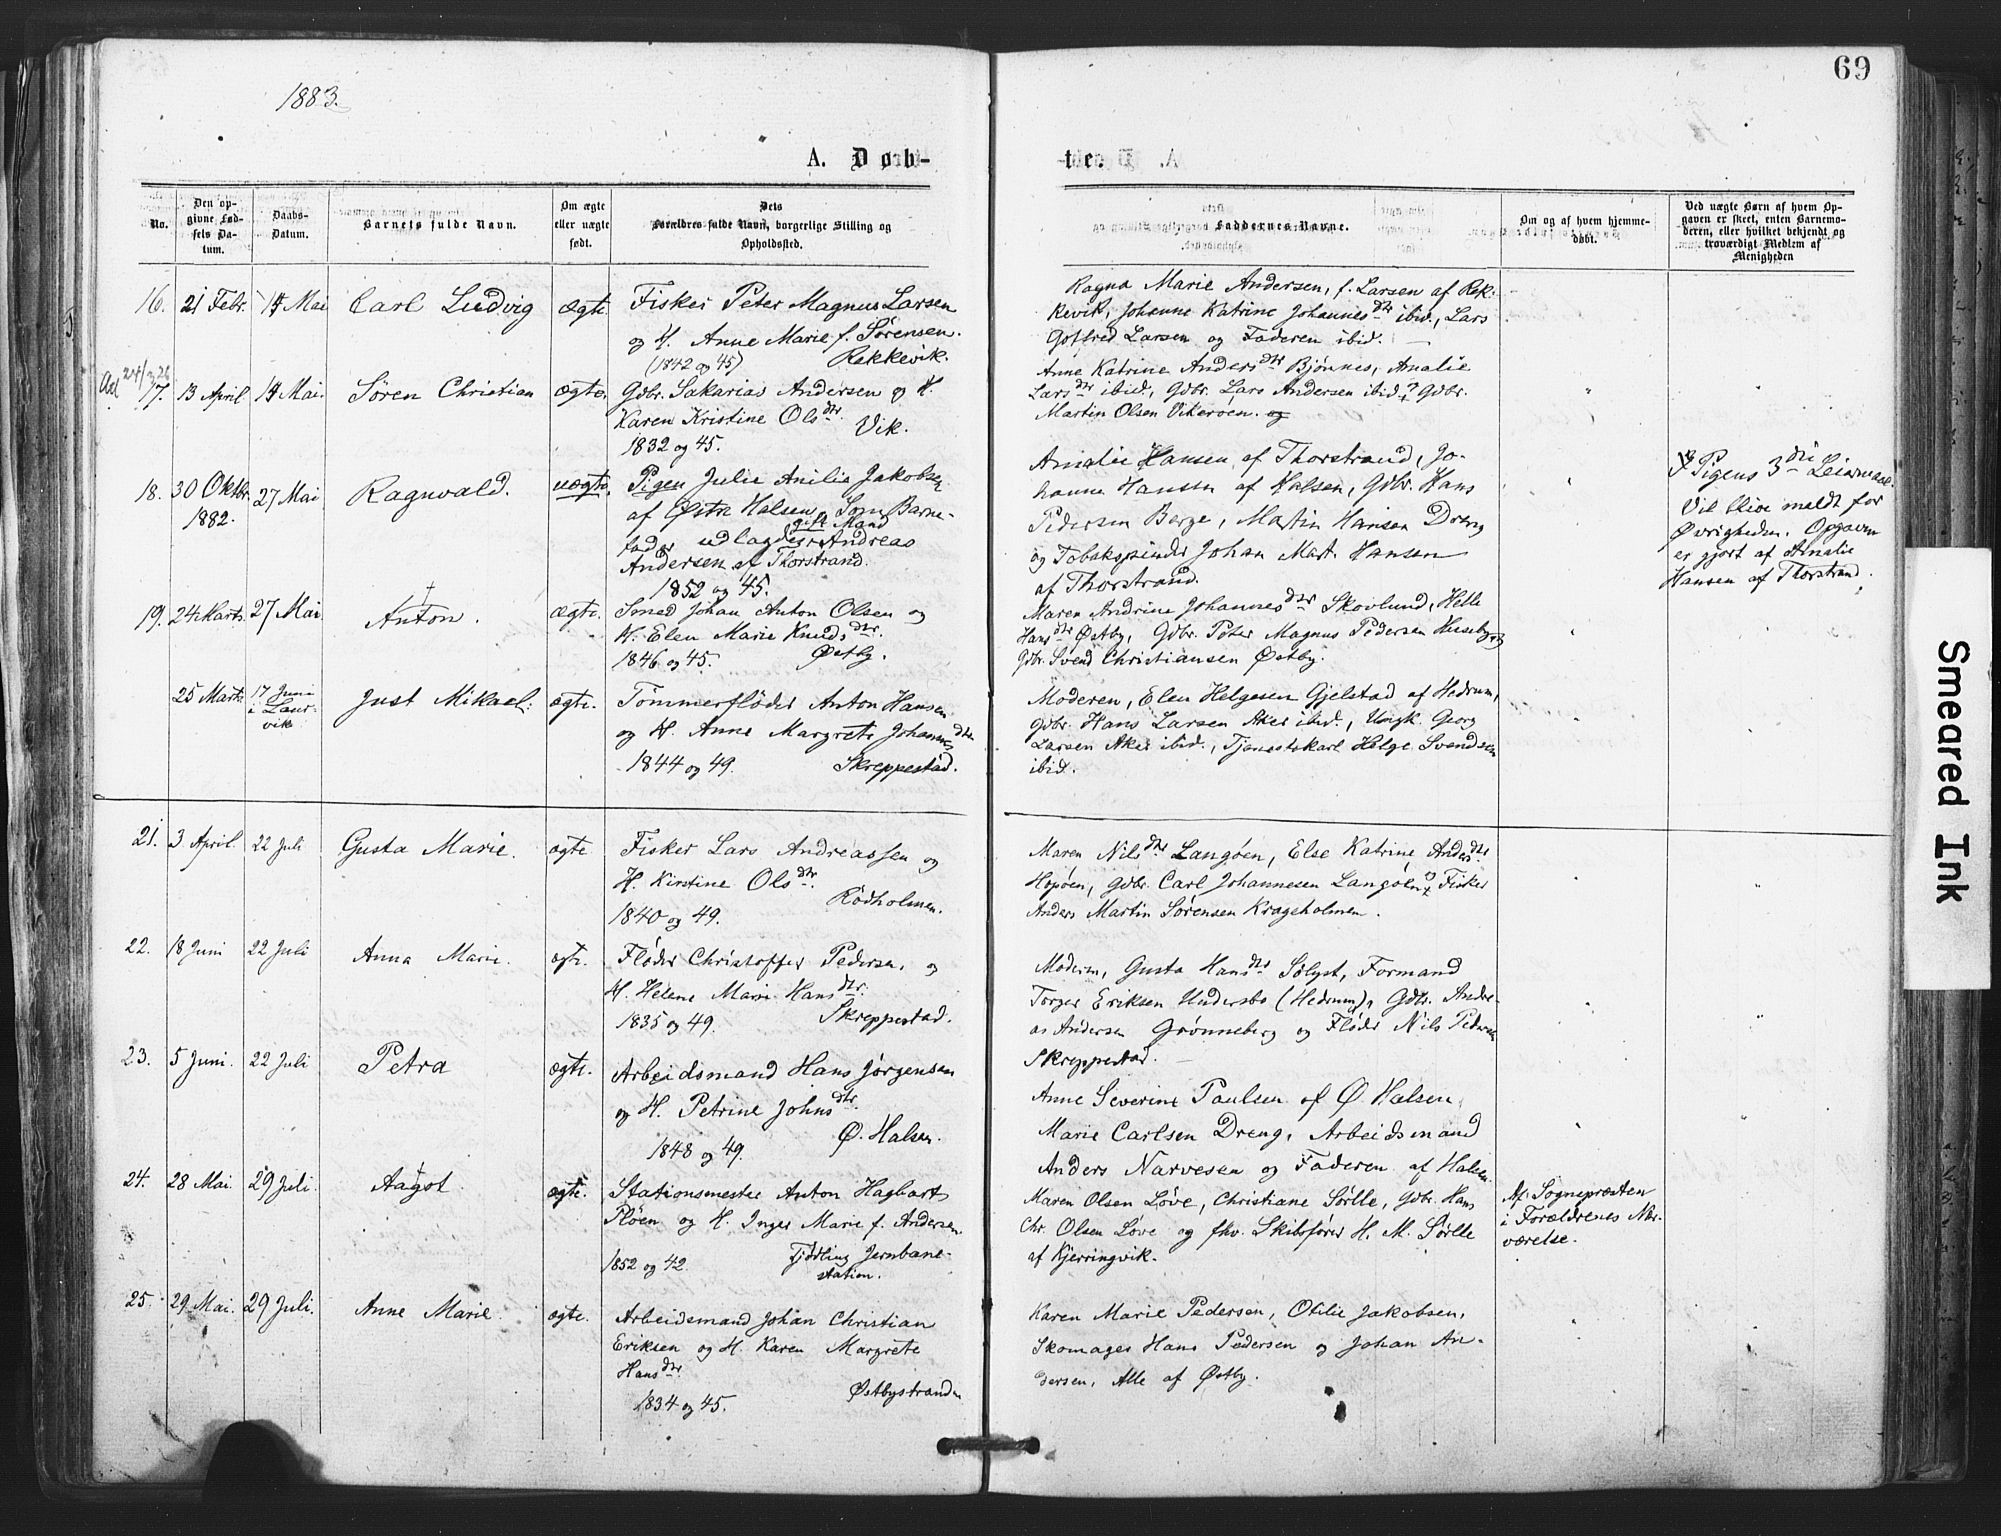 69
1883.
A. Døb-
te.
No.
Den op-
givne Fød-
sels Da-
tum.
Daabs-
Datum.
Barnets fulde Navn.
Om ægte
eller uægte
født.
Dets
Forældres fulde Navn, borgerlige Stilling og
Opholdssted.
Faddernes Navne.
Om og af hvem hjemme-
døbt.
Ved uægte Børn af hvem Op-
gaven er skeet, enten Barnemo-
deren, eller hvilket bekjendt og
troværdigt Medlem af
Menigheden
16. 21 Febr. 14 Mai Carl Ludvig ægte. Fisker Peter Magnus Larsen
og H. Anne Marie f. Sørensen.
(1842 og 45) Rekkevik.
Ragna Marie Andersen, f. Larsen af Rek-
kevik, Johanne Katrine Johannesdtr ibid., Lars
Gotfred Larsen og Faderen ibid.
17. 13 April 14 Mai. Søren Christian ægte. Gdbr. Sakarias Andersen og H.
Karen Kristine Olsdtr.
Vik.
1832 og 45.
Anne Katrine Andersdtr Bjønnes, Amalie
Larsdtr ibid., Gdbr. Lars Andersen ibid. og Gdbr.
Martin Olsen Vikerøen. og
18. 30 Oktbr. 27 Mai Ragnvald. uægte. Pigen Julie Anilie Jakobsen
1882.
af Østre Halsen, Som Barne-
gift Mand
fader udlagdes Andreas
Andersen af Thorstrand.
1852 og 45.
Amalie Hansen af Thorstrand, Jo-
hanne Hansen af Halsen, Gdbr. Hans
Pedersen Berge, Martin Hansen Dreng
og Tobakspinder Johan Mart. Hansen
af Thorstrand.
Pigens 3die Leiermaal.
Vil blive meldt for
Øvrigheden. Opgaven
er gjort af Amalie
Hansen af Thorstrand.
19. 24 Marts 27 Mai Anton. ægte. Smed Johan Anton Olsen og
H. Elen Marie Knudsdtr.
1846 og 45. Østby.
Maren Andrine Johannesdtr Skovlund, Helle
Hansdtr Østby, Gdbr. Peter Magnus Pedersen Huseby og
Gdbr. Svend Christiansen Østby.
25 Marts 17 Juni
i Laur-
vik
Just Mikael. ægte. Tømmerfløder Anton Hansen
og H. Anne Margrete Johannesdtr
1844 og 49. Skreppestad.
Moderen, Elen Helgesen Gjelstad af Hedrum,
Gdbr. Hans Larsen Aker ibid., Ungk. Georg
Larsen Aker ibid., Tjenestekarl Helge Svendsen
ibid.
21. 3 April. 22 Juli Gusta Marie. ægte Fisker Lars Andreassen og
H. Kirstine Olsdtr.
Rødholmen.
1840 og 49.
Maren Nilsdtr Langøen, Else Katrine Andersdtr
Hopøen, Gdbr. Carl Johannesen Langøen og Fisker
Anders Martin Sørensen Krageholmen.
22. 18 Juni 22 Juli Anna Marie. ægte. Fløder Christoffer Pedersen, og
H. Helene Marie Hansdtr.
1835 og 49. Skreppestad.
Moderen, Gusta Hansdtr Sølyst, Formand
Torger Eriksen Undersbo (Hedrum), Gdbr. Andre-
as Andersen Grønneberg og Fløder Nils Pedersen
Skreppestad.
23. 5 Juni. 22 Juli Petra ægte. Arbeidsmand Hans Jørgensen
og H. Petrine Johnsdtr.
1848 og 49. Ø. Halsen.
Anne Severine Paulsen af Ø. Halsen,
Marie Carlsen Dreng, Arbeidsmand
Anders Narvesen og Faderen af Halsen.
24. 28 Mai. 29 Juli. Aagot. ægte. Stationsmester Anton Hagbart
Pløen og H. Inger Marie f. Andersen
1852 og 42. Tjødling Jernbane-
station.
Maren Olsen Løve, Christiane Sørlle, Gdbr. Hans
Chr. Olsen Løve og fhv. Skibsfører H. M. Sørlle
af Kjerringvik.
Af Sognepræsten
i Forældrenes Nær-
værelse.
25. 29 Mai. 29 Juli. Anne Marie. ægte. Arbeidsmand Johan Christian
Eriksen og H. Karen Margrete
Hansdtr.
1834 og 45. Østbystranden
Karen Marie Pedersen, Otilie Jakobsen,
Skomager Hans Pedersen og Johan An-
dersen, Alle af Østby.
Smeared Ink